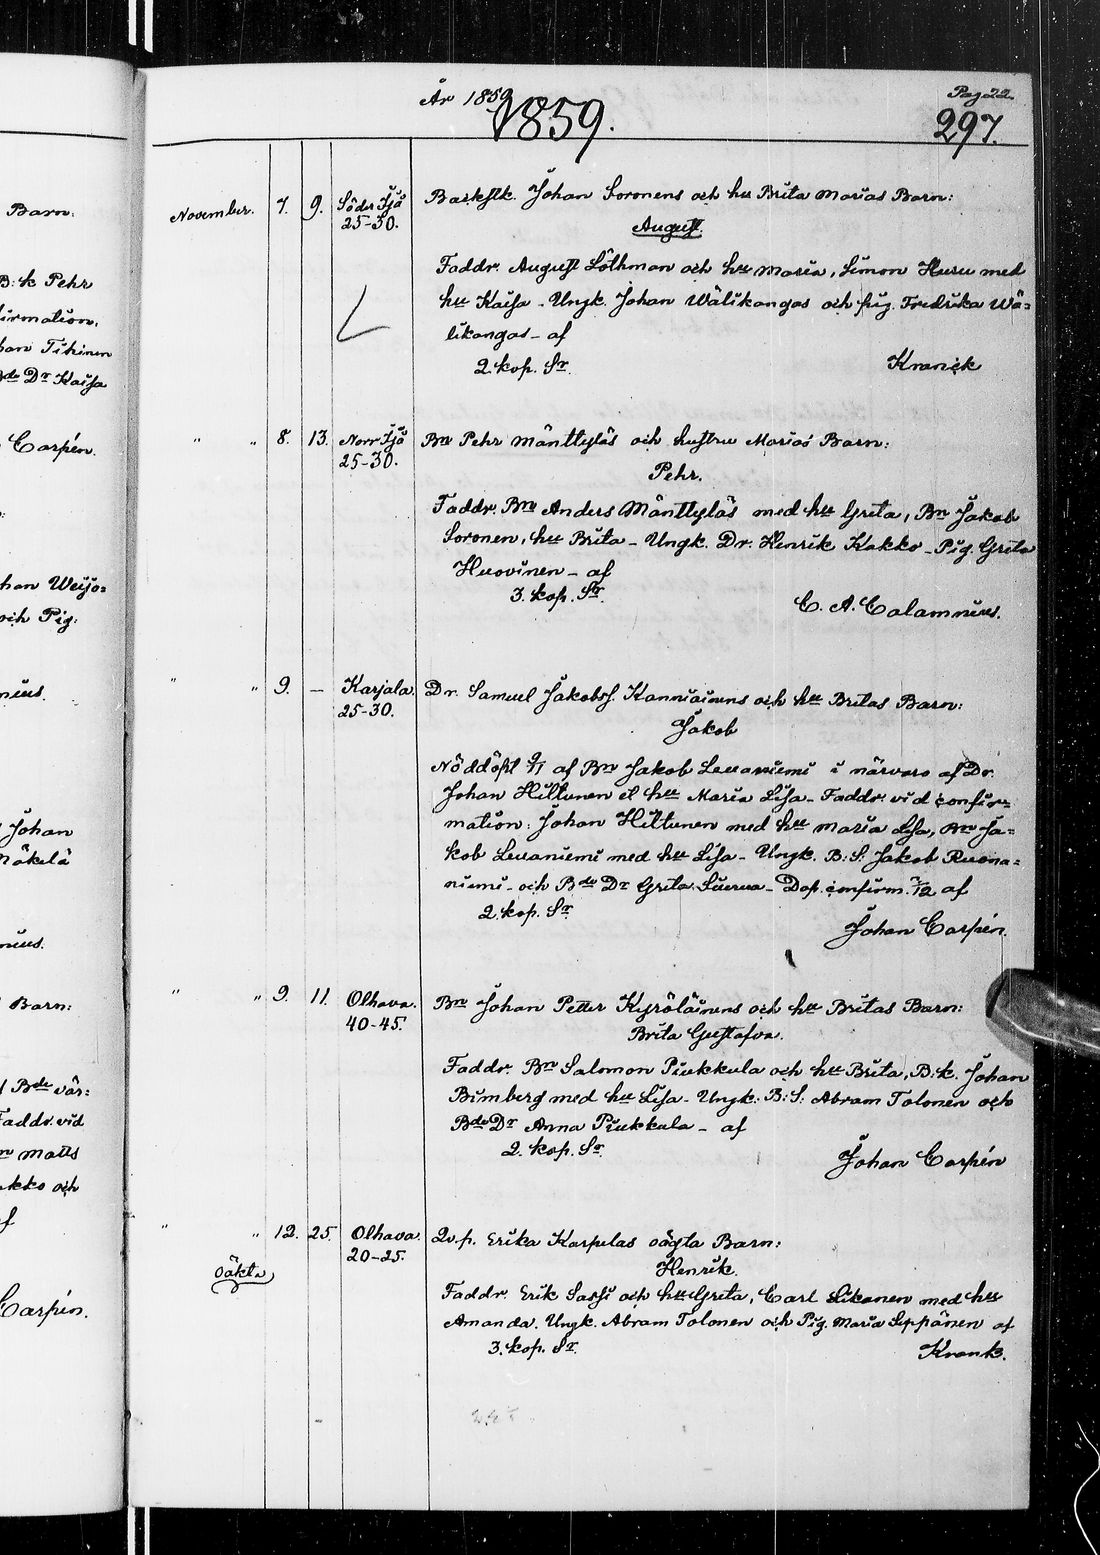 Barn:
B:k Pehr
irmation,
han Tihinen
Bde Dr Kaisa
Carpén.
han Weijo=
och Pig:
nius.
Johan
Mäkelä
nius.
Barn:
Bde vär=
Faddr. vid
Matts
ukko och
af
Carpén.
År 1859
Pag 22.
1859.
297.
November. 7. 9. Söder Ijå Backstk. Johan Soronens och hu Brita Marias Barn:
25-30.
August.
Faddr. August Löthman och hu Maria, Simon Huru med
hu Kaisa - Ungk. Johan Wälikangas och pig. Fredrika Wä=
likangas - af
2. kop. Sr. Kranck
" " 8. 13. Norr Ijå Bn Pehr Mänttyläs och hustru Marias Barn:
25-30.
Pehr.
Faddr. Bn Anders Mänttyläs med hu Greta, Bn Jakob
Soronen, hu Brita - Ungk. Dr. Henrik Kakko - Pig. Greta
Huovinen - af
3. kop. Sr. C. A. Calamnius.
" " 9. - Karjala. Dr. Samuel Jakobsf. Kanniainens och hu Britas Barn:
25-30.
Jakob
Nöddöpt 9/11 af Bn Jakob Leuaniemi i närvaro af Dr.
Johan Hiltunen et hu Maria Lisa - Faddr. vid confir=
mation: Johan Hiltunen med hu Maria Lisa, Bn Ja=
kob Leuaniemi med hu Lisa - Ungk. B: S: Jakob Ruona=
niemi - och Bde Dr Greta - Dop. confirm. af
2. kop. Sr.
Johan Carpén.
" " 9. 11. Olhava. Bn Johan Petter Kyröläinens och hu Britas Barn:
40-45.
Brita Gustafva.
Faddr. Bn Salomon Piukkula och hu Brita, B:k. Johan
Bimberg med hu Lisa - Ungk. B: S: Abram Tolonen och
Bde Dr Anna Piukkula - af
2. kop. Sr.
Johan Carpén
" " 12. 25. Olhava. Qv.p. Erika Karpelas oägta Barn:
20-25.
Oäkta
Henrik.
Faddr. Erik Sassi och hu Greta, Carl Likanen med hu
Amanda. Ungk. Abram Tolonen och Pig. Maria Seppänen af
3. kop. Sr. Krank.